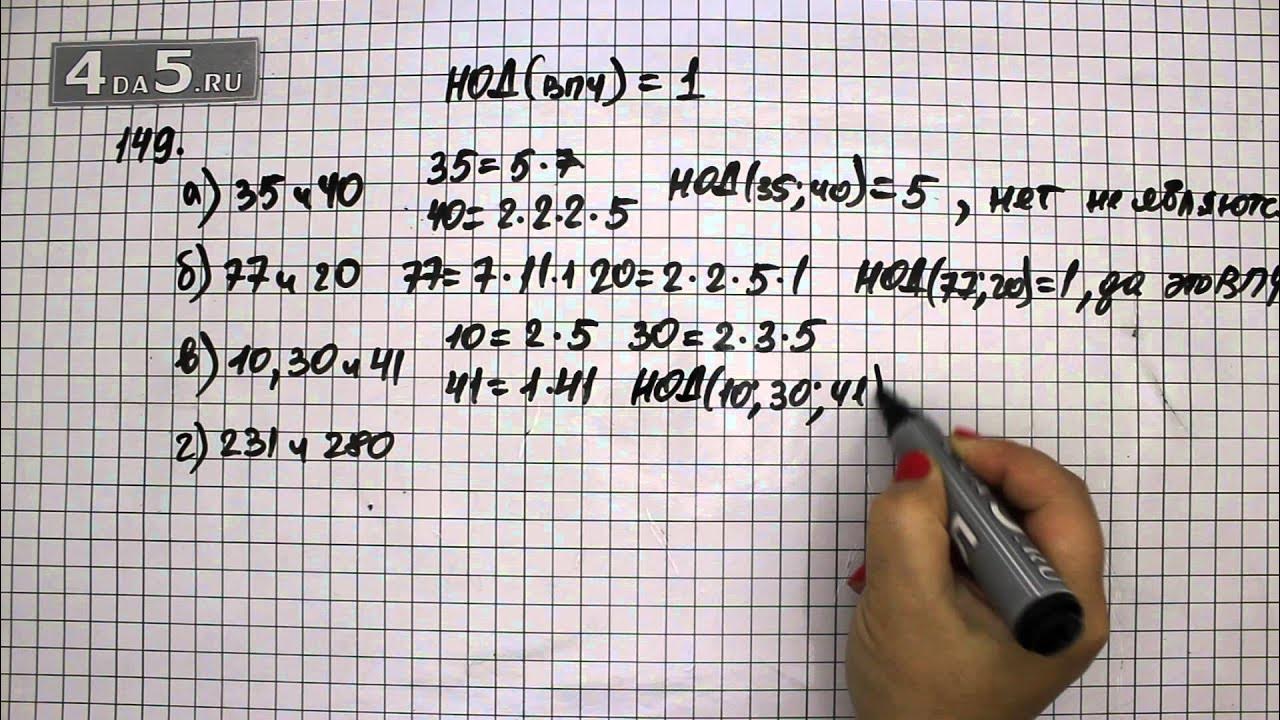 4DA5.RU
НОД(ВПЧ) = 1
149.
а) 35 и 40
35 = 5 · 7
40 = 2 · 2 · 2 · 5
НОД(35; 40) = 5 , нет не являютс
б) 77 и 20
77 = 7 · 11 · 1 20 = 2 · 2 · 5 · 1
НОД(77; 20) = 1 , да это ВПЧ
в) 10, 30 и 41
10 = 2 · 5 30 = 2 · 3 · 5
41 = 1 · 41 НОД(10; 30; 41)
г) 231 и 280